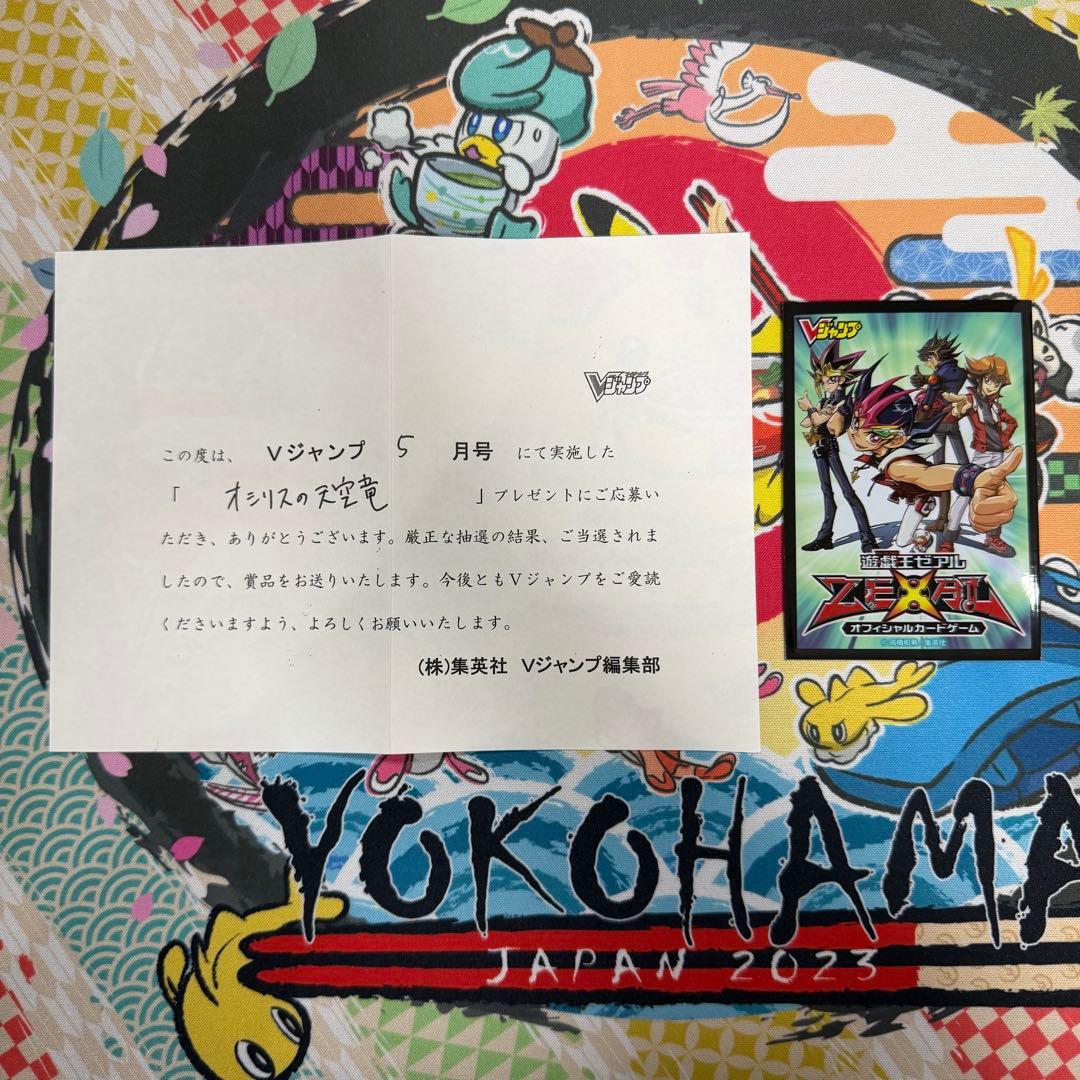 Vジャンプ
この度は、 Vジャンプ 5 月号 にて実施した
「 オシリスの天空竜 」プレゼントにご応募い
ただき、ありがとうございます。厳正な抽選の結果、ご当選されま
したので、賞品をお送りいたします。今後ともVジャンプをご愛読
くださいますよう、よろしくお願いいたします。
(株)集英社 Vジャンプ編集部
Vジャンプ
遊戯王ゼアル
ZEXAL
オフィシャルカードゲーム
©高橋和希/集英社
YOKOHAMA
JAPAN 2023